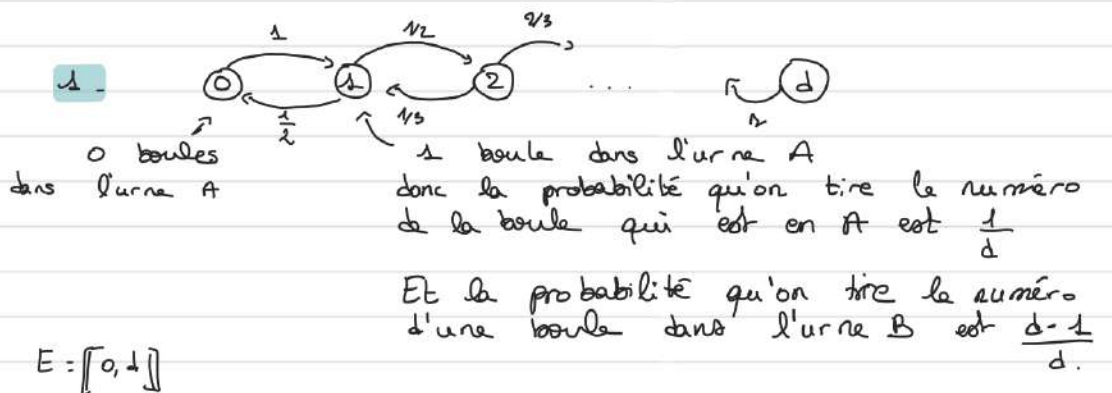 1 1/2 2/3
1 - 0 1 2 ... d
1/2 1/3 1
0 boules 1 boule dans l'urne A
dans l'urne A donc la probabilité qu'on tire le numéro
de la boule qui est en A est 1/d
Et la probabilité qu'on tire le numéro
d'une boule dans l'urne B est d-1/d.
E = ⟦0, d⟧